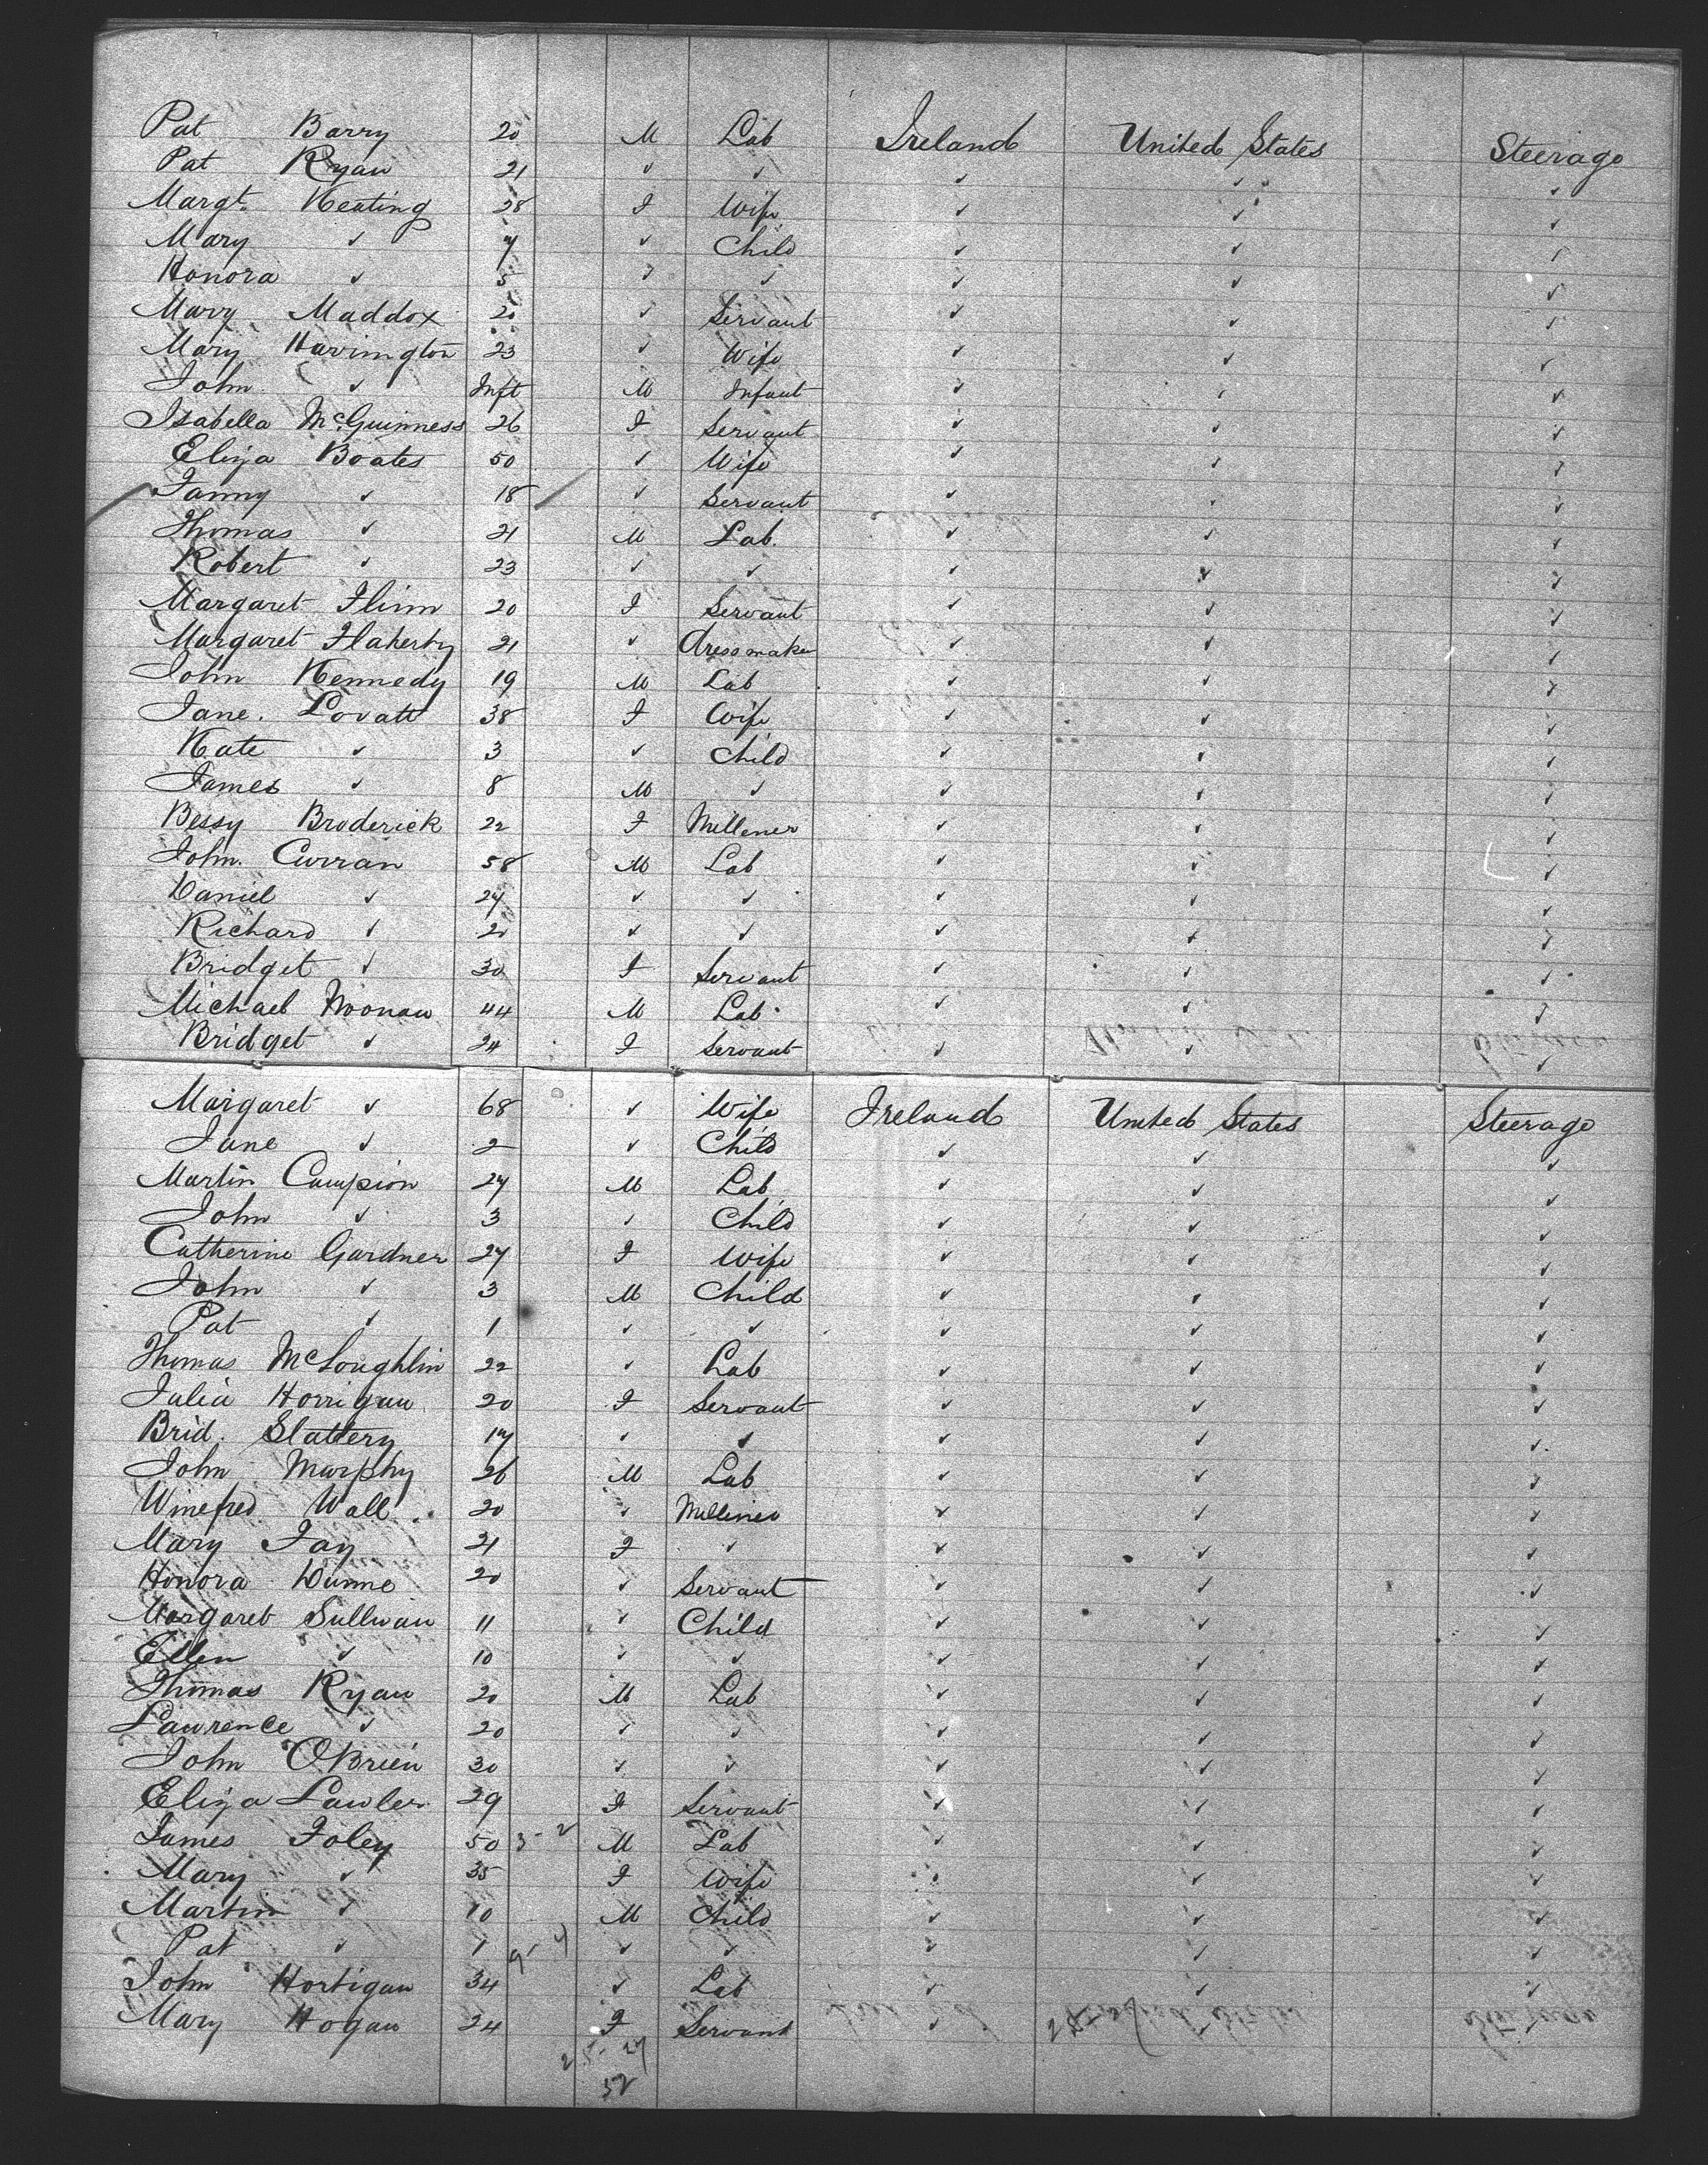 Pat Barry 20 M Lab Ireland United States Steerage
Pat Ryan 21 ✓ ✓ ✓ ✓ ✓
Margt. Keating 28 F Wife ✓ ✓ ✓
Mary ✓ 7 ✓ Child ✓ ✓ ✓
Honora ✓ 5 ✓ ✓ ✓ ✓ ✓
Mary Maddox 20 ✓ Servant ✓ ✓ ✓
Mary Harrington 23 ✓ Wife ✓ ✓ ✓
John ✓ Inft M Infant ✓ ✓ ✓
Isabella McGuinness 26 F Servant ✓ ✓ ✓
Eliza Boates 50 ✓ Wife ✓ ✓ ✓
Fanny ✓ 18 ✓ Servant ✓ ✓ ✓
Thomas ✓ 21 M Lab. ✓ ✓ ✓
Robert ✓ 23 ✓ ✓ ✓ ✓ ✓
Margaret Flinn 20 F Servant ✓ ✓ ✓
Margaret Flaherty 21 ✓ dressmaker ✓ ✓ ✓
John Kennedy 19 M Lab ✓ ✓ ✓
Jane. Lovatt 38 F Wife ✓ ✓ ✓
Kate ✓ 3 ✓ Child ✓ ✓ ✓
James ✓ 8 M ✓ ✓ ✓ ✓
Bessy Broderick 22 F Millener ✓ ✓ ✓
John. Curran 58 M Lab ✓ ✓ ✓
Daniel ✓ 24 ✓ ✓ ✓ ✓ ✓
Richard ✓ 20 ✓ ✓ ✓ ✓ ✓
Bridget ✓ 30 F Servant ✓ ✓ ✓
Michael Noonan 44 M Lab ✓ ✓ ✓
Bridget ✓ 24 F Servant ✓ ✓ ✓
Margaret ✓ 68 ✓ Wife Ireland United States Steerage
Jane ✓ 2 ✓ Child ✓ ✓ ✓
Martin Campion 27 M Lab ✓ ✓ ✓
John ✓ 3 ✓ Child ✓ ✓ ✓
Catherine Gardner 27 F Wife ✓ ✓ ✓
John ✓ 3 M Child ✓ ✓ ✓
Pat ✓ 1 ✓ ✓ ✓ ✓ ✓
Thomas McLoughlin 22 ✓ Lab ✓ ✓ ✓
Julia Horrigan 20 F Servant ✓ ✓ ✓
Brid. Slattery 17 ✓ ✓ ✓ ✓ ✓
John Murphy 26 M Lab ✓ ✓ ✓
Winefred Wall 20 ✓ Milliner ✓ ✓ ✓
Mary Fay 21 F ✓ ✓ ✓ ✓
Honora Dunne 20 ✓ Servant ✓ ✓ ✓
Margaret Sullivan 11 ✓ Child ✓ ✓ ✓
Ellen ✓ 10 ✓ ✓ ✓ ✓ ✓
Thomas Ryan 20 M Lab ✓ ✓ ✓
Lawrence ✓ 20 ✓ ✓ ✓ ✓ ✓
John O'Brien 30 ✓ ✓ ✓ ✓ ✓
Eliza Lawler 29 F Servant ✓ ✓ ✓
James Foley 50 3-2 M Lab ✓ ✓ ✓
Mary ✓ 35 F Wife ✓ ✓ ✓
Martin ✓ 10 M Child ✓ ✓ ✓
Pat ✓ 1 ✓ ✓ ✓ ✓ ✓
John Hortigan 34 ✓ Lab ✓ ✓ ✓
Mary Hogan 24 F Servant ✓
25-27
52